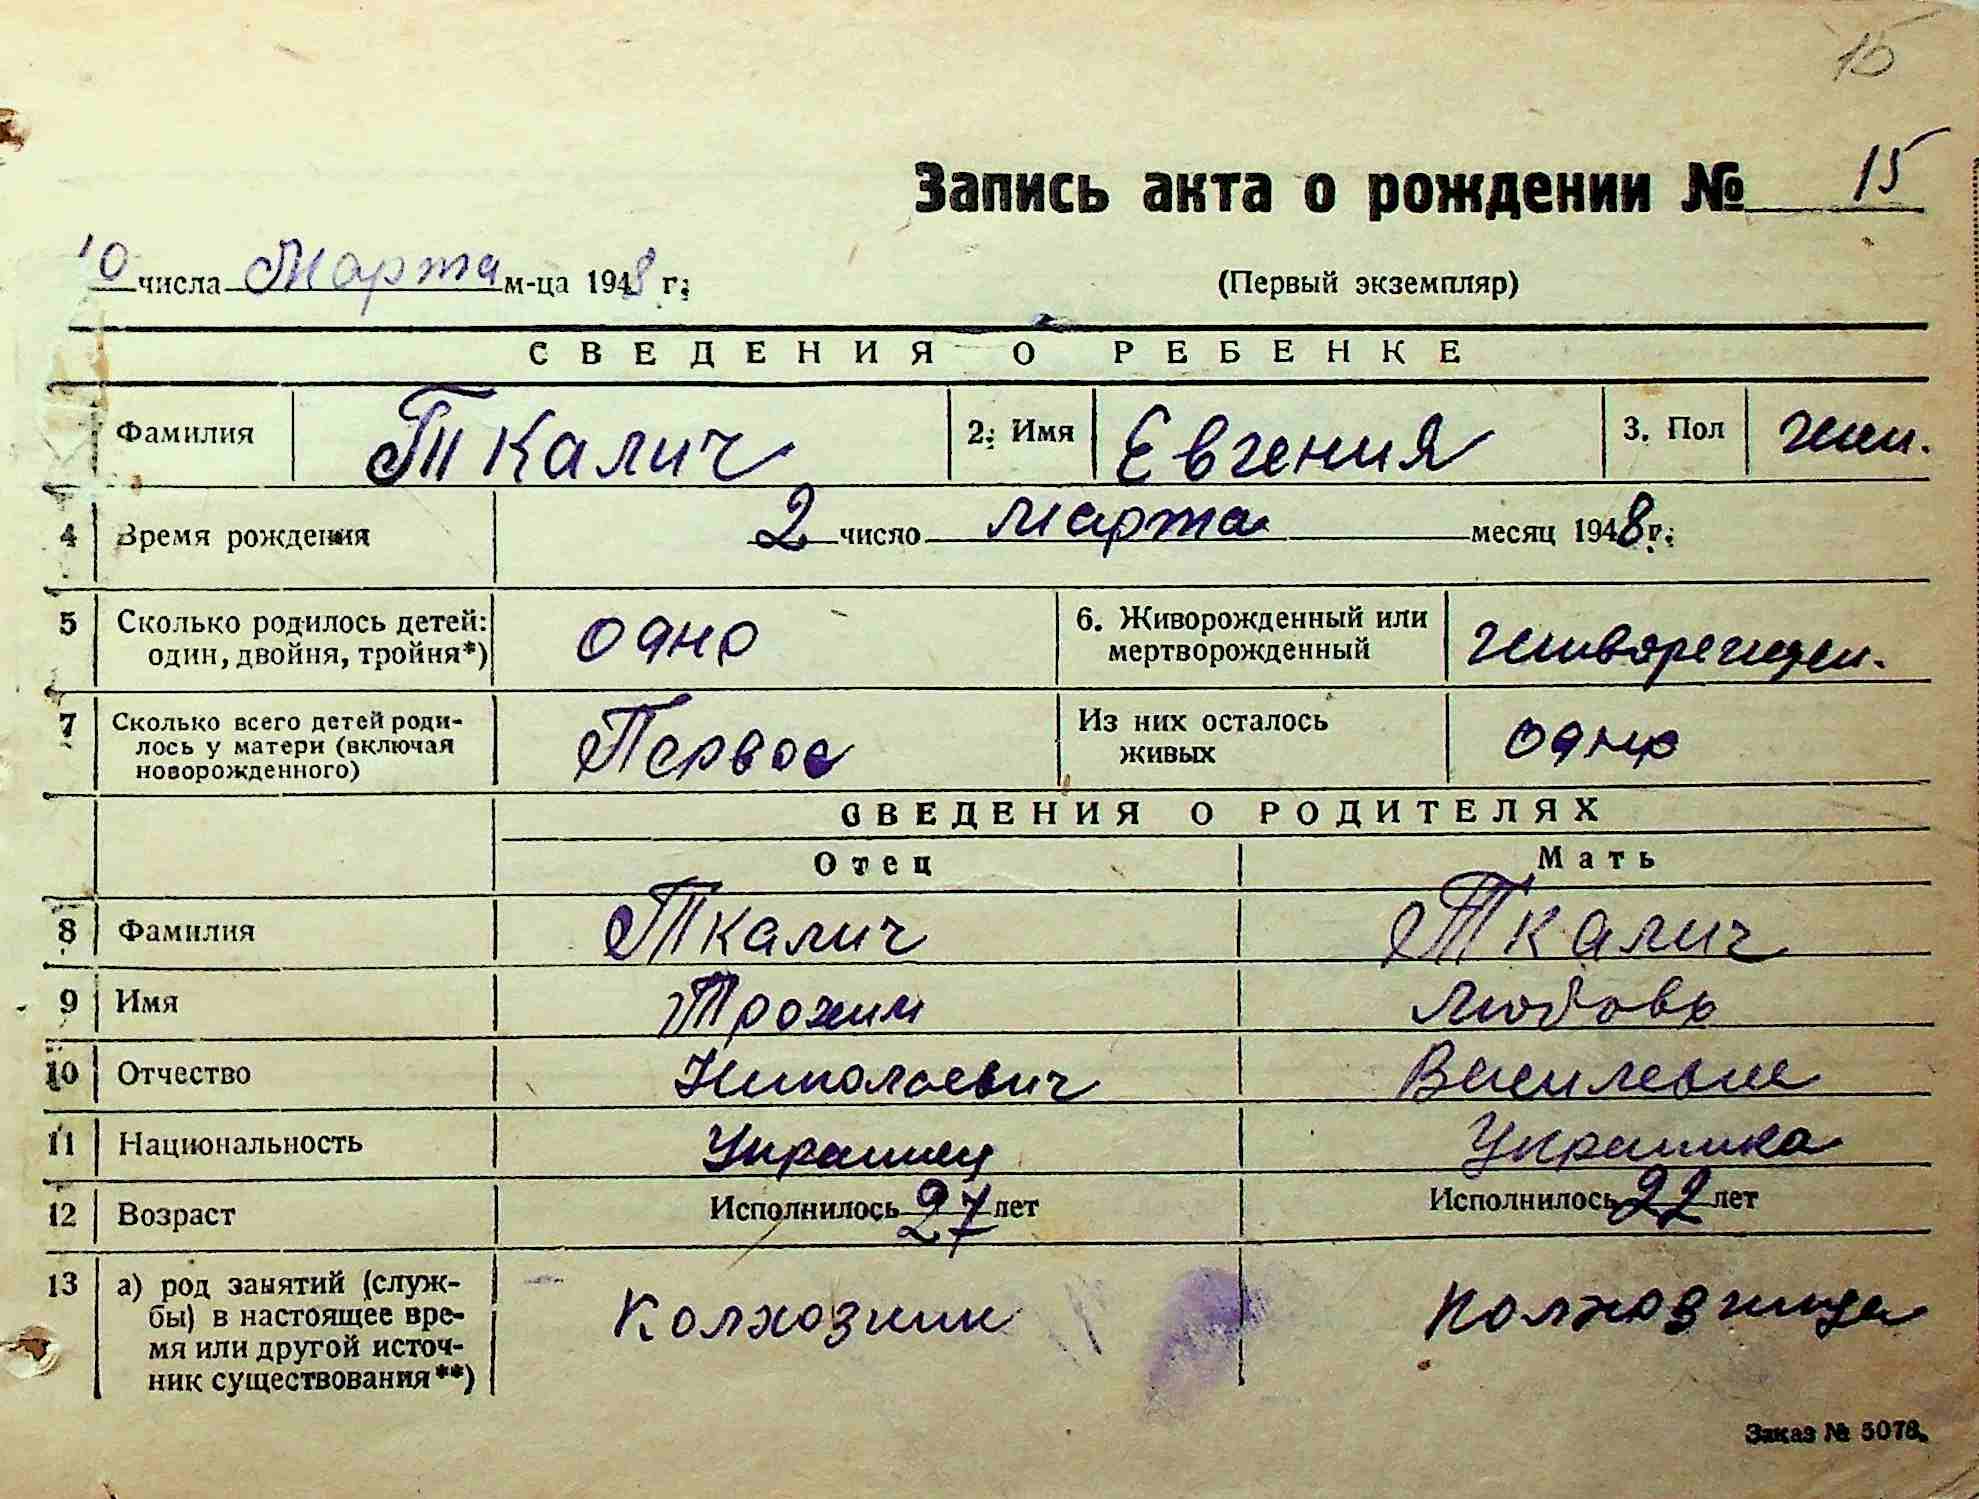 15
Запись акта о рождении № 15
10 числа Марта м-ца 1948 г.
(Первый экземпляр)
СВЕДЕНИЯ О РЕБЕНКЕ
Фамилия Ткалич 2. Имя Евгения 3. Пол жен.
4 Время рождения 2 число марта месяц 1948 г.
5 Сколько родилось детей: один, двойня, тройня*) одно 6. Живорожденный или мертворожденный живорожден.
7 Сколько всего детей роди-
лось у матери (включая
новорожденного) Первое Из них осталось живых одно
СВЕДЕНИЯ О РОДИТЕЛЯХ
Отец Мать
8 Фамилия Ткалич Ткалич
9 Имя Трохим Любовь
10 Отчество Николаевич
11 Национальность Украинец Украинка
12 Возраст Исполнилось 27 лет Исполнилось 22 лет
13 а) род занятий (служ-
бы) в настоящее вре-
мя или другой источ-
ник существования**) Колхозник колхозница
Заказ № 5078.